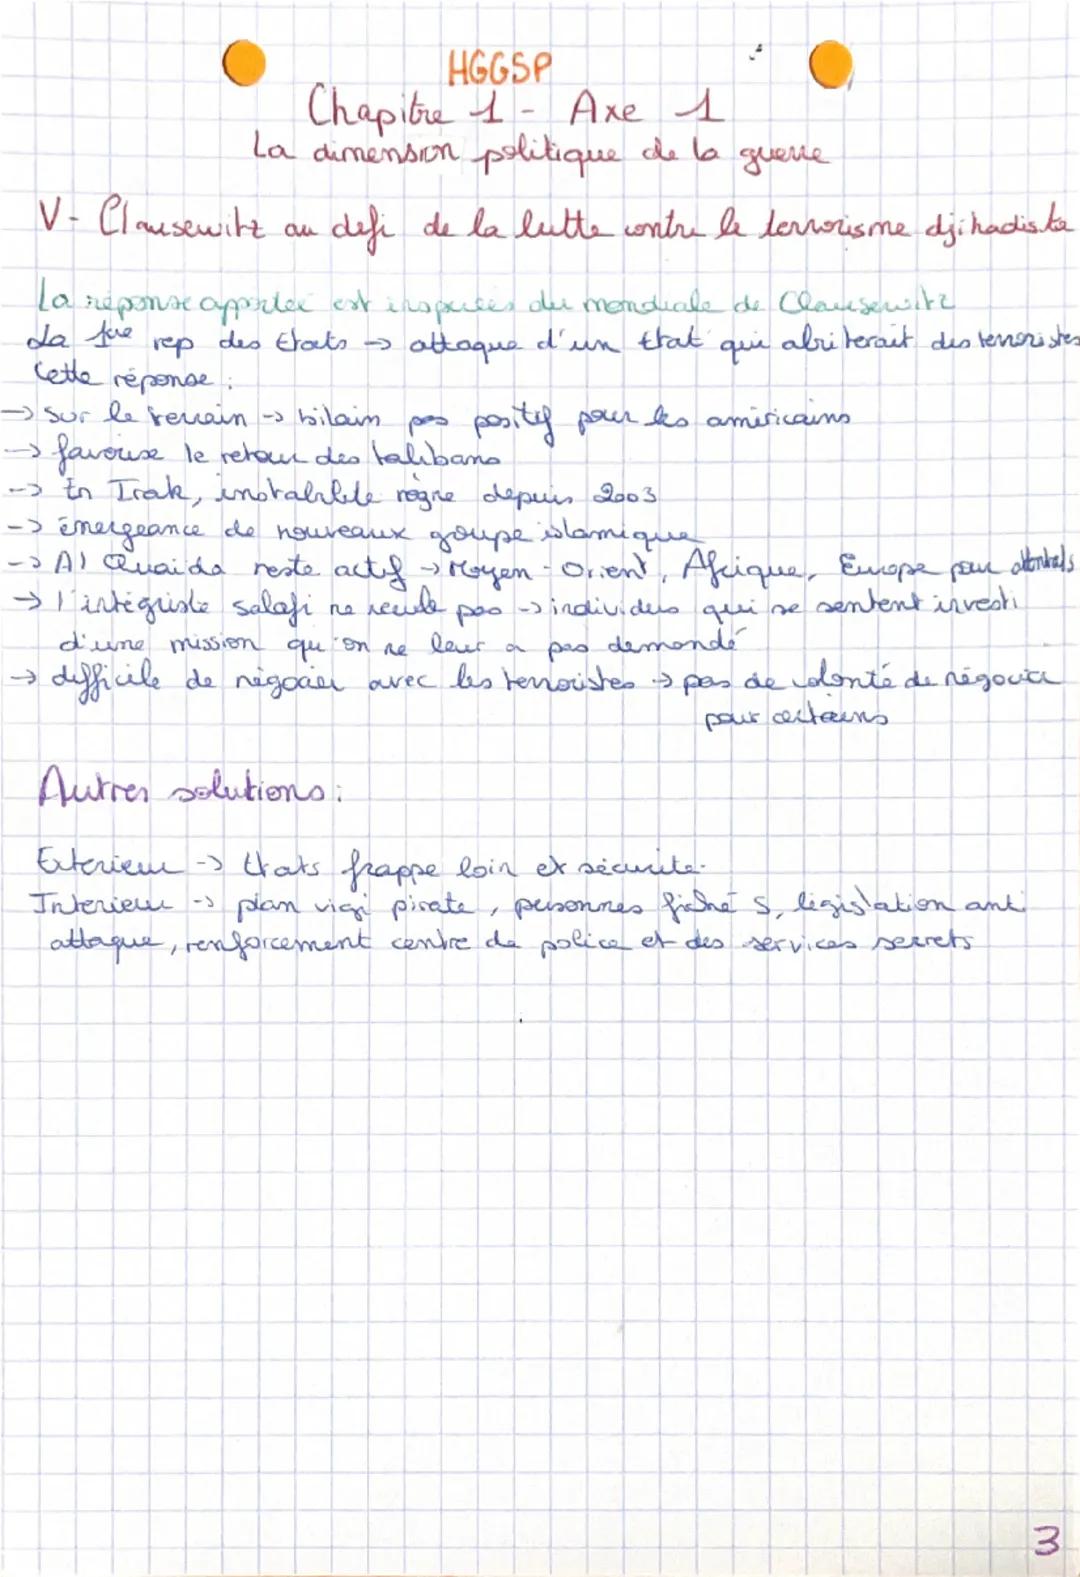 HGGSP
Chapitre 1 - Axe 1
La dimension politique de la guerre
V- Clausewitz au defi de la lutte contre le terrorisme djihadiste
La réponse apportée est inspirées du mondiale de Clausewitz
La 1ère rep des Etats → attaque d'un Etat qui abriterait des terroristes
Cette réponse :
→ Sur le terrain → bilain pas positif pour les américains
→ favorise le retour des talibans
→ En Irak, instabilité règne depuis 2003
→ émergeance de nouveaux groupe islamique
→ Al Quaida reste actif → Moyen-Orient, Afrique, Europe pour attentats
→ l'intégriste salafi ne recule pas → individus qui se sentent investi
d'une mission qu'on ne leur a pas demandé
→ difficile de négocier avec les terroristes → pas de volonté de négocier
pour certains
Autres solutions :
Exterieur → Etats frappe loin et sécurité.
Interieur → plan vigi pirate, personnes fiché S, législation anti
attaque, renforcement centre de police et des services secrets
3